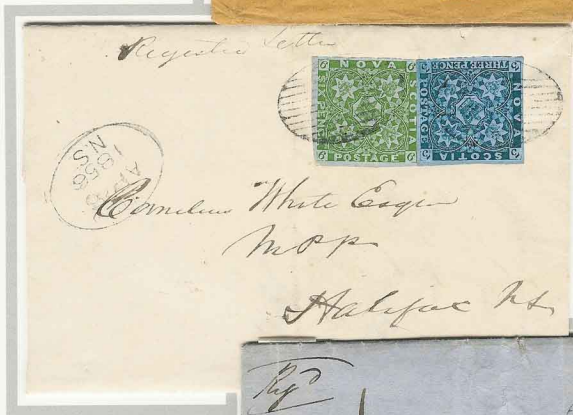 Registered Letter
NOVA SCOTIA
POSTAGE
NOVA SCOTIA
THREE PENCE
POSTAGE
AP
1858
N.S.
Cornelius White Esqr
MPP
Halifax NS
Rgd